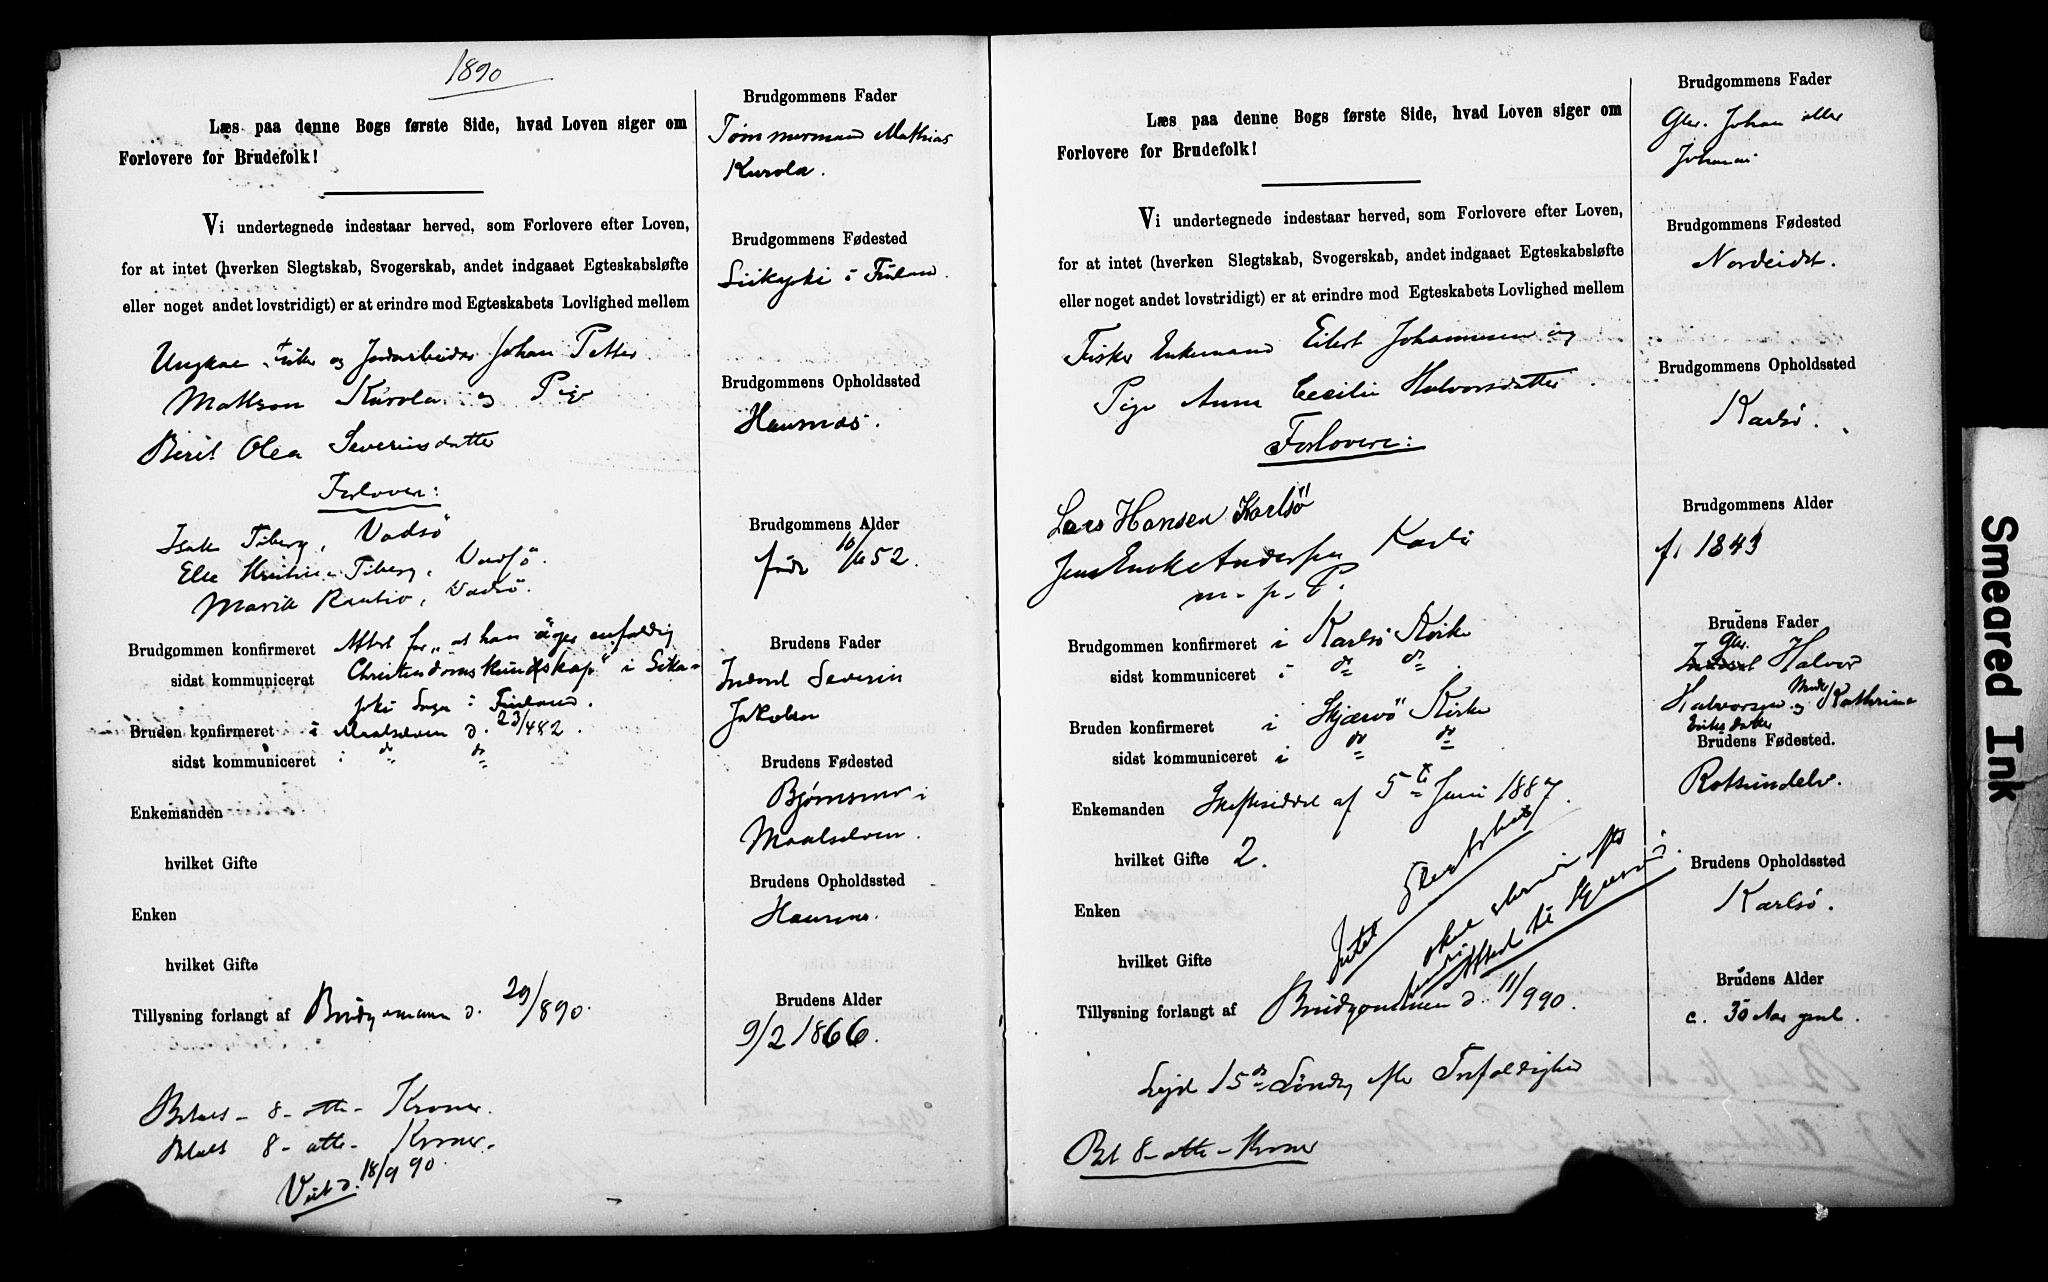 1890
Læs paa denne Bogs første Side, hvad Loven siger om
Forlovere for Brudefolk!
Vi undertegnede indestaar herved, som Forlovere efter Loven,
for at intet (hverken Slegtskab, Svogerskab, andet indgaaet Egteskabsløfte
eller noget andet lovstridigt) er at erindre mod Egteskabets Lovlighed mellem
Ungkar Fisker og Jordarbeider Johan Petter
Mattson Kurola og Pige
Berit Olea Severinsdatter
Forlovere:
Isak Tiberg, Vadsö
Else Kristine Tiberg, Vadsö.
Marik Rautio, Vadsö.
Brudgommen konfirmeret Attest for "at han äger enfaldig
sidst kommuniceret Christendomskundskap" i Sika-
joki Sogn i Finland.
Bruden konfirmeret i Maalselven d. 23/4 82.
sidst kommuniceret i do do
Enkemanden
hvilket Gifte
Enken
hvilket Gifte
Tillysning forlangt af Brudgommen d. 29/8 90.
Betalt - 8 - otte - Kroner.
Betalt 8 - otte - Kroner.
Viet d. 18/9 90.
Brudgommens Fader
Tømmermand Mathias
Kurola.
Brudgommens Fødested
i Finland.
Brudgommens Opholdssted
Hansnæs.
Brudgommens Alder
født 10/6 52.
Brudens Fader
Inderst Severin
Jakobsen
Brudens Fødested
i
Maalselven.
Brudens Opholdssted
Hansnæs.
Brudens Alder
9/2 1866.
Læs paa denne Bogs første Side, hvad Loven siger om
Forlovere for Brudefolk!
Vi undertegnede indestaar herved, som Forlovere efter Loven,
for at intet (hverken Slegtskab, Svogerskab, andet indgaaet Egteskabsløfte
eller noget andet lovstridigt) er at erindre mod Egteskabets Lovlighed mellem
Fisker Enkemand Eilert Johannesen og
Pige Anna Cecilie Halvorsdatter.
Forlovere:
Lars Hansen Karlsö
Jens Enok Andersen Karlsö
m. p. P.
Brudgommen konfirmeret i Karlsö Kirke
sidst kommuniceret i do do
Bruden konfirmeret i Skjærvö Kirke
sidst kommuniceret i do do
Enkemanden Skifteseddel af 5te Juni 1887.
hvilket Gifte 2.
Intet Slegtskab
skal skrives efter
Attest til Skjærvö
Enken
hvilket Gifte
Tillysning forlangt af Brudgommen d. 11/9 90.
15de Söndag efter Trefoldighed
Bet 8 - otte - Kroner
Brudgommens Fader
Gbr. Johan eller
Brudgommens Fødested
Nordeidet.
Brudgommens Opholdssted
Karlsö.
Brudgommens Alder
f. 1843
Brudens Fader
Gbr.
Inderst Halvor
Halvorsen og Moder Kathrina
Eriksdatter
Brudens Fødested.
Rotsundelv.
Brudens Opholdssted
Karlsö.
Brudens Alder
c. 30 Aar gml.
Smeared Ink